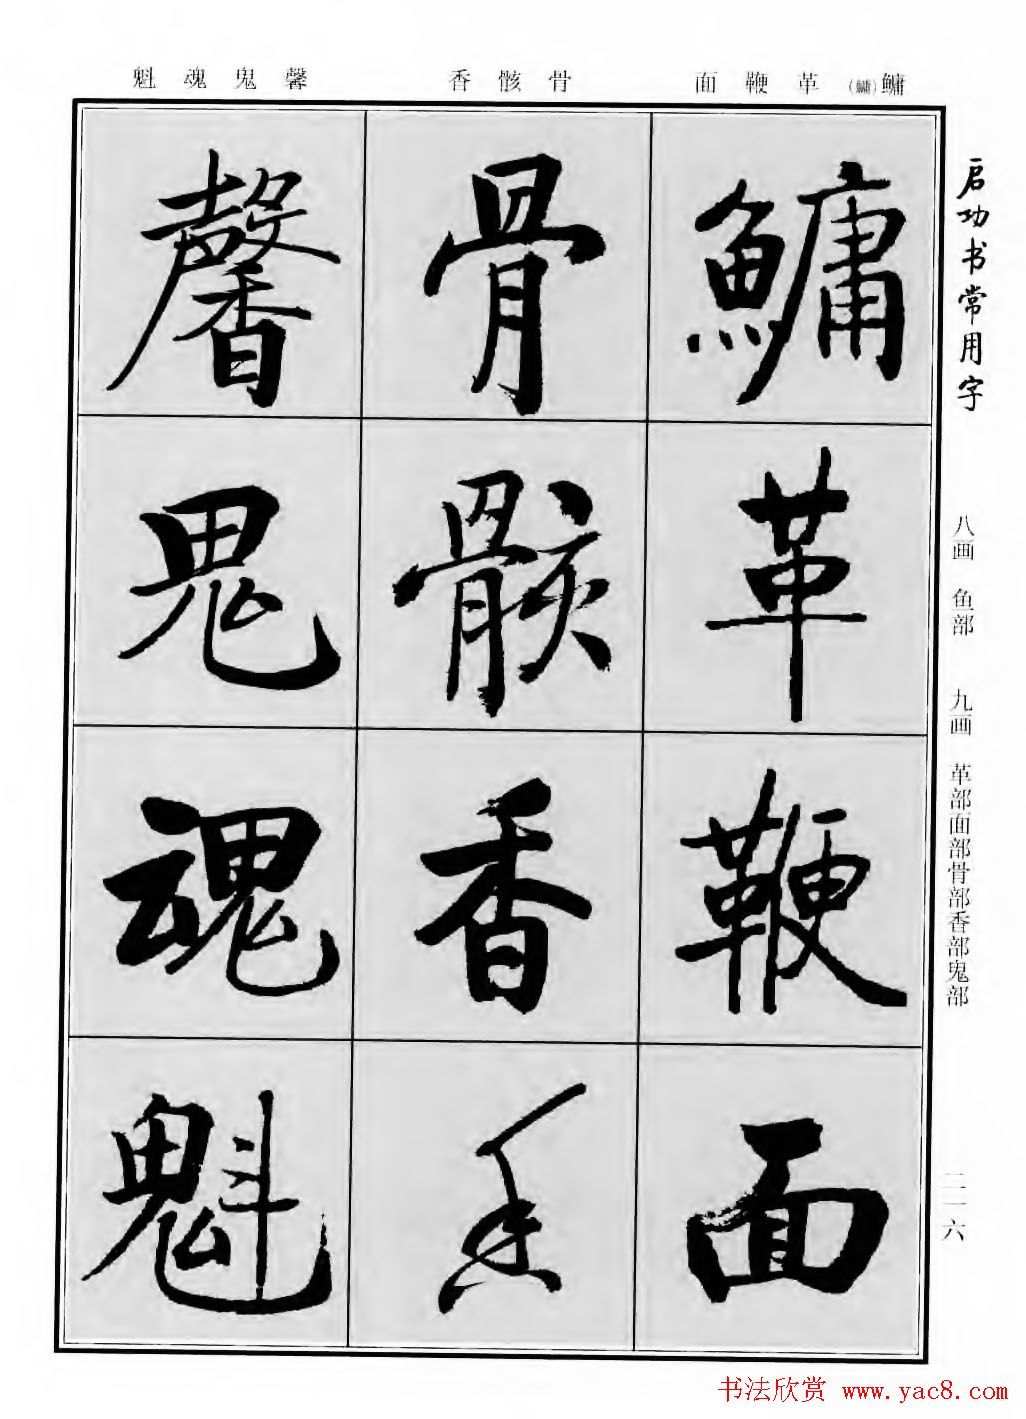 启功书常用字
八画 鱼部 九画 革部面部骨部香部鬼部
二一六
鳙(鱅) 革 鞭 面
骨 骸 香
馨 鬼 魂 魁
鱅
革
鞭
面
骨
骸
香
香
馨
鬼
魂
魁
书法欣赏 www.yac8.com